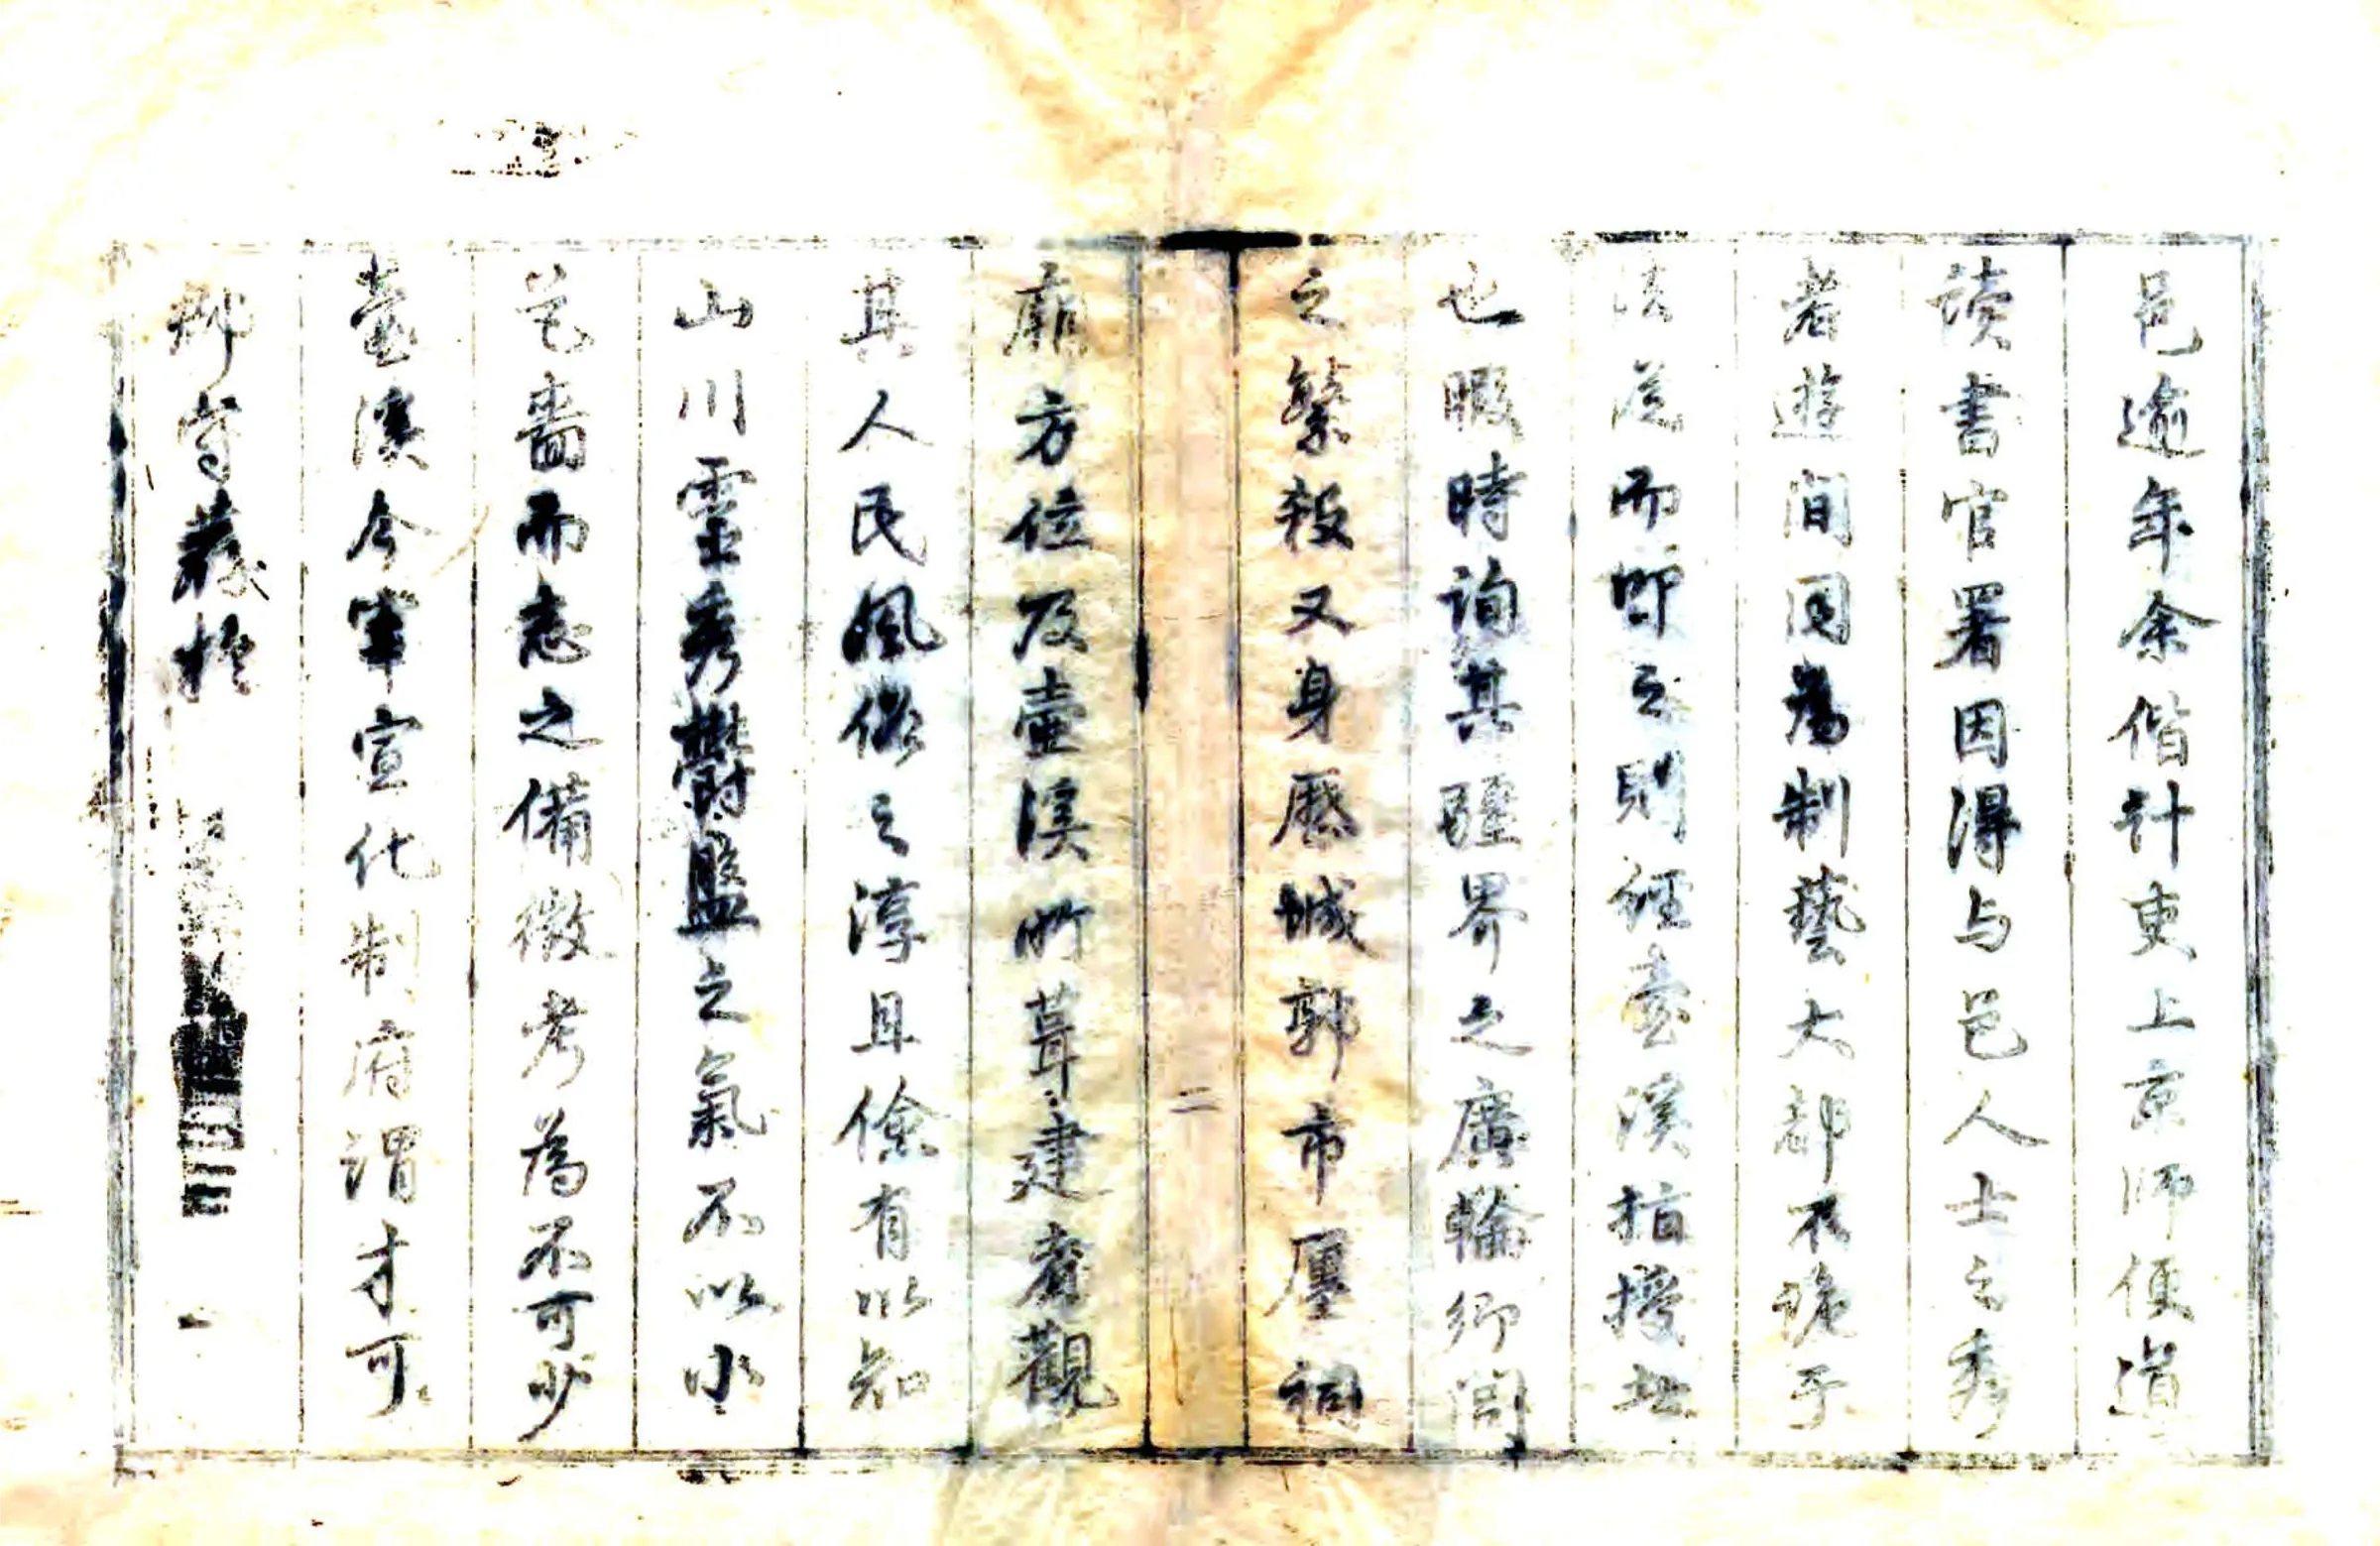 邑逾年余偕計吏上京師便道
读書官署因淂与邑人士之秀
者遊間因為制藝大都不詭于
法居而叩之则經壺溪指授
也暇時詢其疆界之廣輪鄉閭
之繁殺又身歷城郭市廛祠
二
廟方位及壺溪所葺建審觀
其人民風俗之淳且儉有以知
山川靈秀欝盤之氣不以小
邑嗇而志之備徵考為不可少
壺溪今宰宣化制府謂才可
郡守